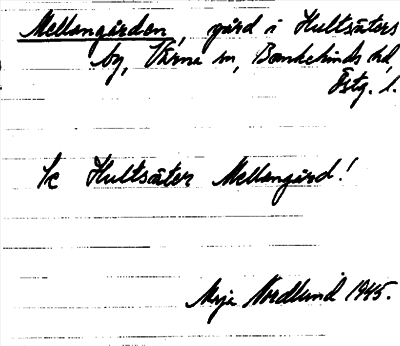 Mellangården, gård i Hultsäters
by, Värna sn, Bankekinds hd,
Östg. l.
Se Hultsäter Mellangård!
Maja Nordlund 1945.